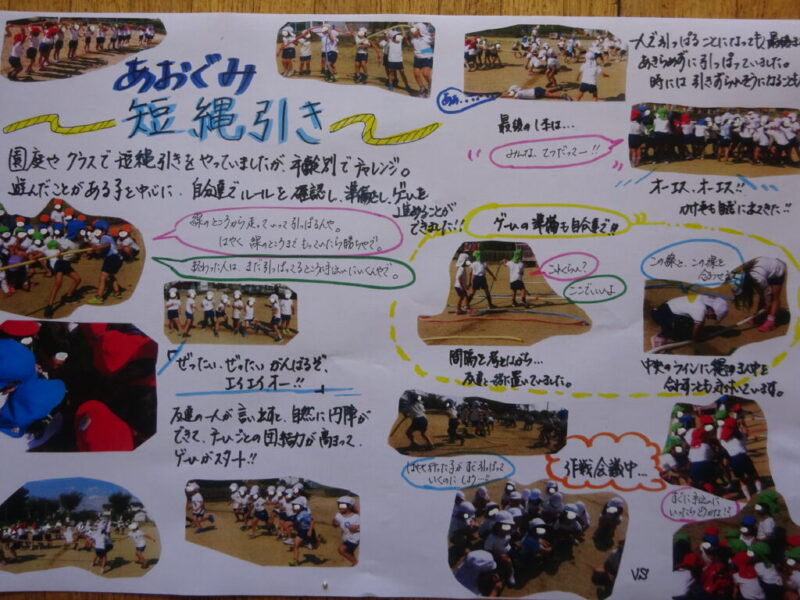 あおぐみ
短縄引き
園庭やクラスで短縄引きをやっていましたが、年齢別でチャレンジ。
遊んだことがある子を中心に、自分達でルールを確認し、準備をし、ゲームを
進めることが
できました!!
線のところから走っていって引っぱるんや。
はやく線のところまでもっていたら勝ちやで。
終わった人は、まだ引っぱってるところ
いくんやで。
「ぜったい、ぜったいがんばるぞ、
エイエイオー!!」
友達の一人が言い出すと、自然に円陣が
できて、チームごとの団結力が高まって、
ゲームがスタート!!
ああ....
最後の1本は...
みんな、てつだってー!!
一人で引っぱることになっても、最後ま
あきらめずに引っぱっていました。
時には引きずられそうになること
オーエス、オーエス!!
かけ声も自然に出てきた!!
ゲームの準備も自分達で!!
このくらい?
ここでいいよ
間隔を見ながら...
友達と一緒に置いていました。
この線と、この線を
合わせる
中央のラインに縄の真ん中を
合わすことも
います。
はやく行った子がすぐ引っぱって
いくのにしよう
作戦会議中...
すぐに手伝いに
いったらどうかな!?
VS